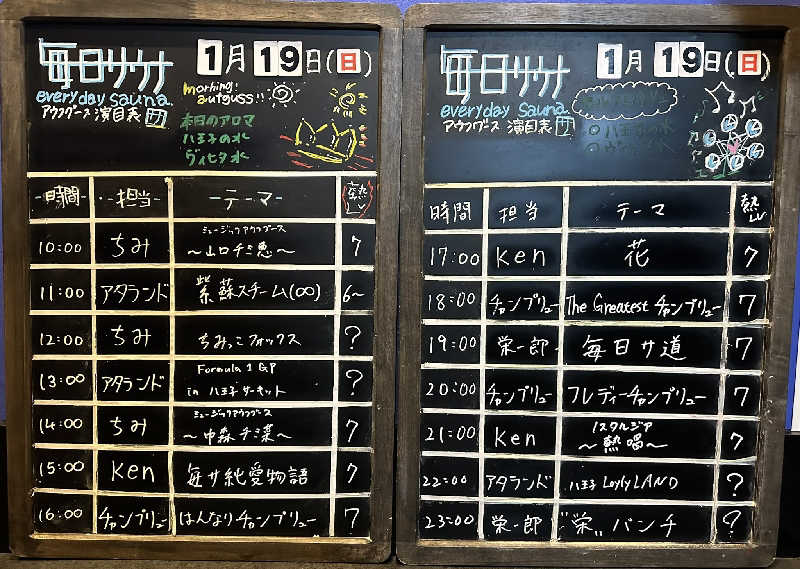 毎日サウナ
1月19日(日)
everyday sauna.
アウフグース 演目表
morning!
aufguss!!
本日のアロマ
八王子の水
ヴィヒタ水
時間 担当 テーマ 熱Lv
10:00 ちみ ミュージックアウフグース
～山口チミ恵～ 7
11:00 アタランド 紫蘇スチーム(∞) 6～
12:00 ちみ ちみっこフォックス ?
13:00 アタランド Formula 1 GP
in 八王子サーキット ?
14:00 ちみ ミュージックアウフグース
～中森チミ菜～ 7
15:00 Ken 毎サ純愛物語 7
16:00 チャンプリュー はんなりチャンプリュー 7
毎日サウナ
1月19日(日)
everyday Sauna.
アウフグース 演目表
時間 担当 テーマ 熱Lv
17:00 Ken 花 7
18:00 チャンプリュー The Greatest チャンプリュー 7
19:00 栄一郎 毎日サ道 7
20:00 チャンプリュー フレディーチャンプリュー 7
21:00 Ken ノスタルジア
～熱唱～ 7
22:00 アタランド 八王子 Löyly LAND ?
23:00 栄一郎 "栄" パンチ ?